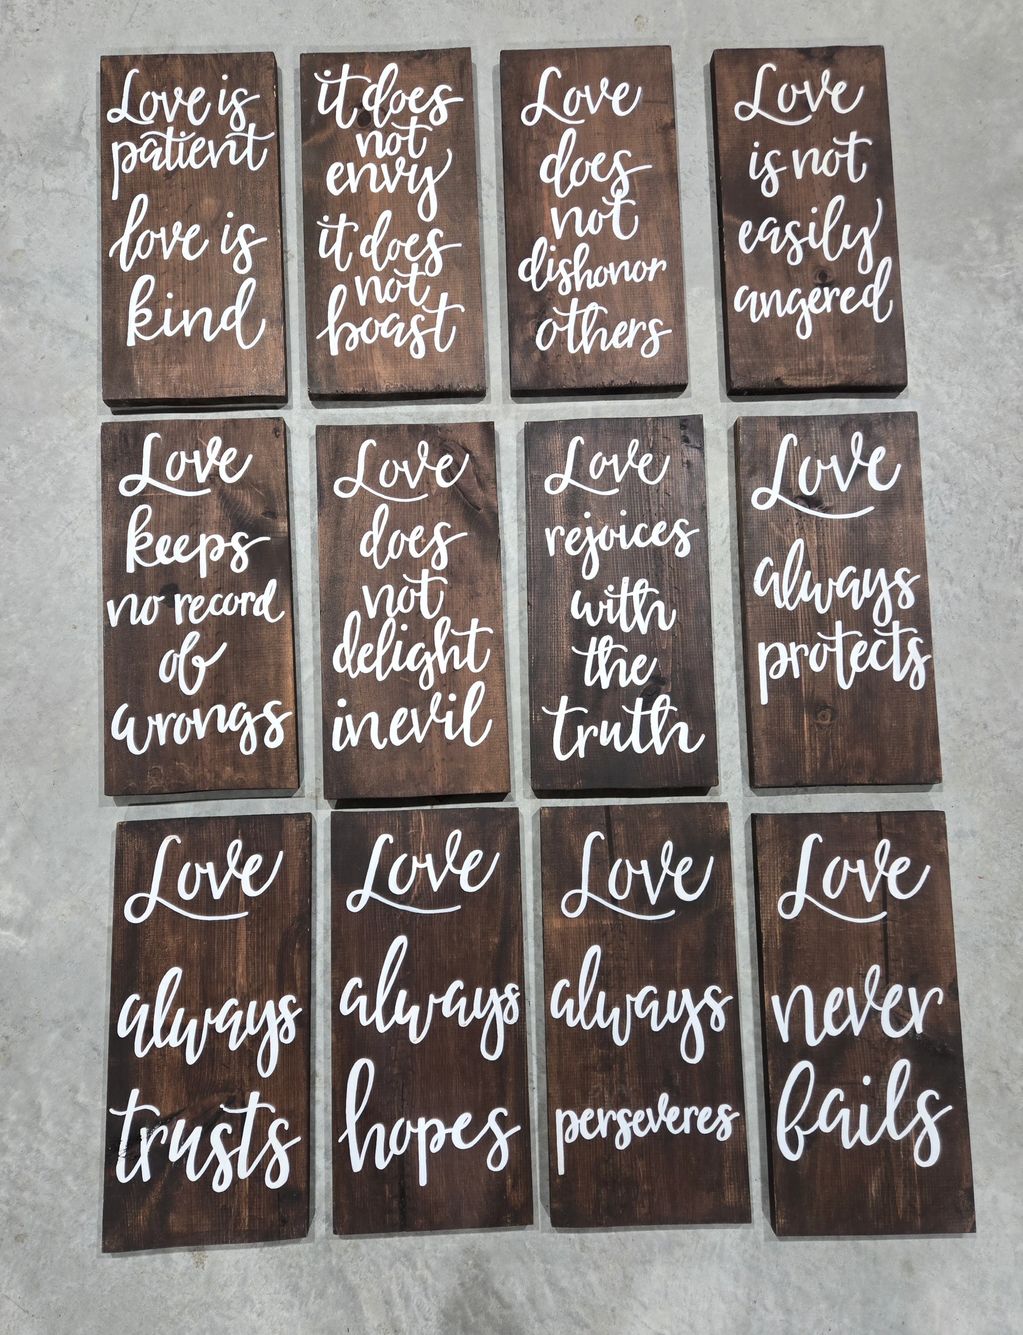 Love is
patient
love is
kind
it does
not
envy
it does
not
boast
Love
does
not
dishonor
others
Love
is not
easily
angered
Love
keeps
no record
of
wrongs
Love
does
not
delight
in evil
Love
rejoices
with
the
truth
Love
always
protects
Love
always
trusts
Love
always
hopes
Love
always
perseveres
Love
never
fails